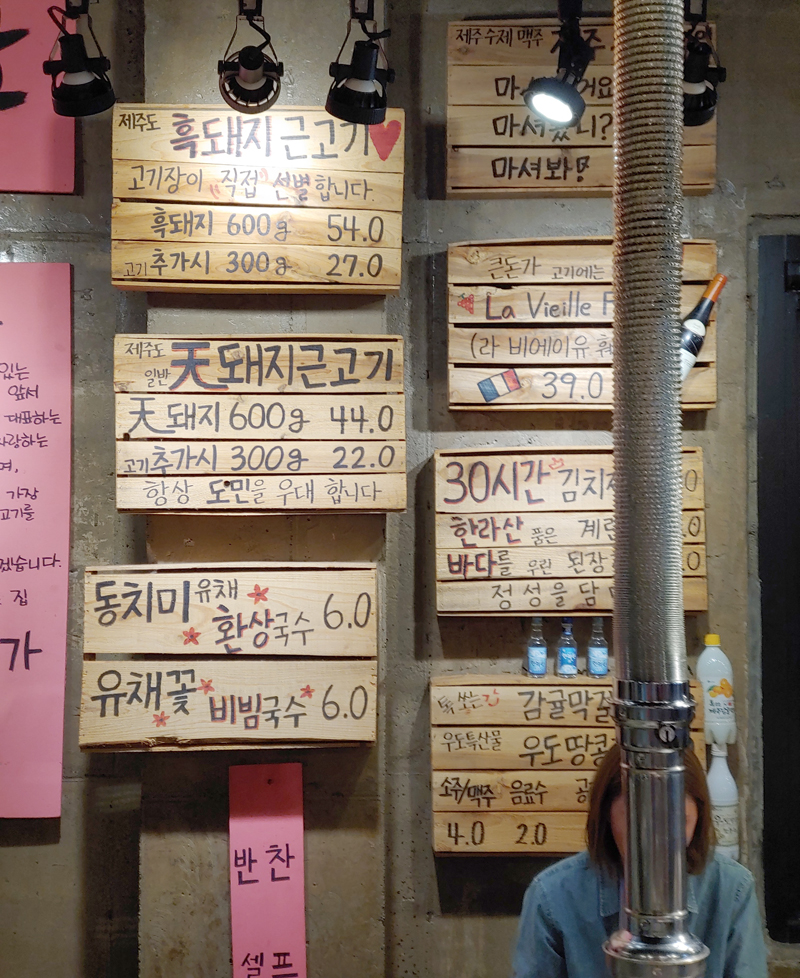 제주도 흑돼지근고기
고기장이 "직접" 선별합니다.
흑돼지 600g 54.0
고기추가시 300g 27.0
제주도
일반 天돼지근고기
天돼지 600g 44.0
고기추가시 300g 22.0
항상 도민을 우대 합니다
동치미 유채
환상국수 6.0
유채꽃
비빔국수 6.0
반찬
셀프
제주 수제 맥주
마셔봤니?
마셔봐!
큰돈가 고기에는
La Vieille F
(라 비에이유
39.0
30시간 김치
한라산 품은 계란
바다를 우린 된장
정성을 담
톡 쏘는 감귤막걸
우도특산물 우도땅콩
소주/맥주 음료수 공
4.0 2.0
있는
앞서
대표하는
사랑하는
며,
가장
고기를
겠습니다.
집
가